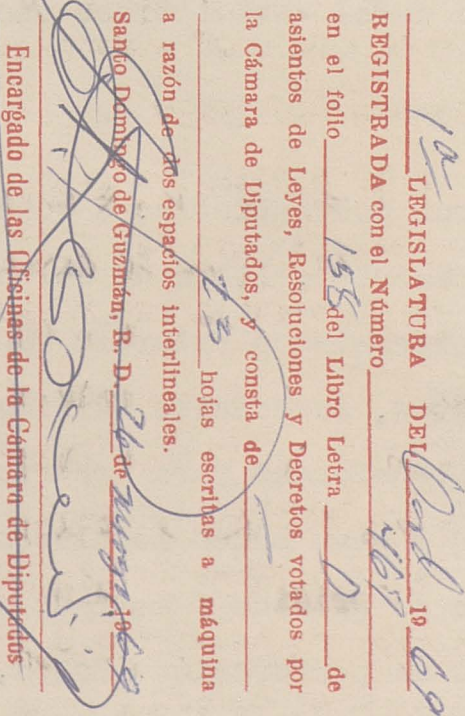 1a LEGISLATURA DEL Ord 19 60
REGISTRADA con el Número 467
en el folio 158 del Libro Letra D de
asientos de Leyes, Resoluciones y Decretos votados por
la Cámara de Diputados, y consta de
23 hojas escritas a máquina
a razón de dos espacios interlineales.
Santo Domingo de Guzmán, R. D. 26 de mayo 196
Encargado de las Oficinas de la Cámara de Diputados